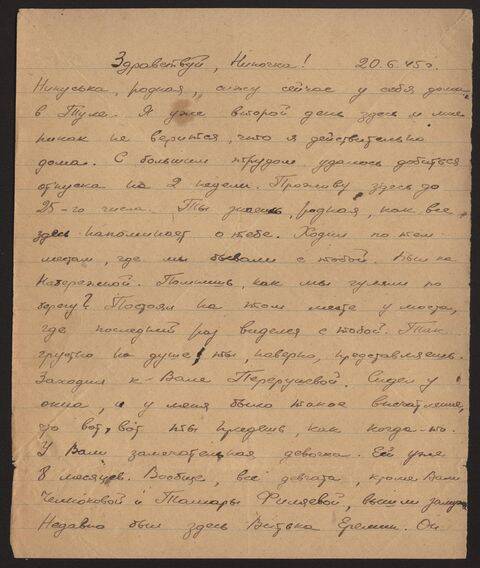 Здравствуй, Ниночка! 20.6.45г.
Нинуська, родная, сижу сейчас у себя дома
в Туле. Я уже второй день здесь и мне
никак не верится, что я действительно
дома. С большим трудом удалось добиться
отпуска на 2 недели. Проживу здесь до
25-го числа. Ты знаешь, родная, как все
здесь напоминает о тебе. Ходил по тем
местам, где мы бывали с тобой. Был на
Набережной. Помнишь, как мы гуляли по
берегу? Постоял на том месте у моста,
где последний раз виделся с тобой. Так
грустно на душе, ты, наверно, представляешь.
Заходил к Вале. Сидел у
окна, и у меня было такое впечатление,
что вот, вот ты придешь, как когда-то.
У Вали замечательная девочка. Ей уже
8 месяцев. Вообще, все девчата, кроме Вали
и Тамары, вышли замуж.
Недавно был здесь Витька Еремин. Он